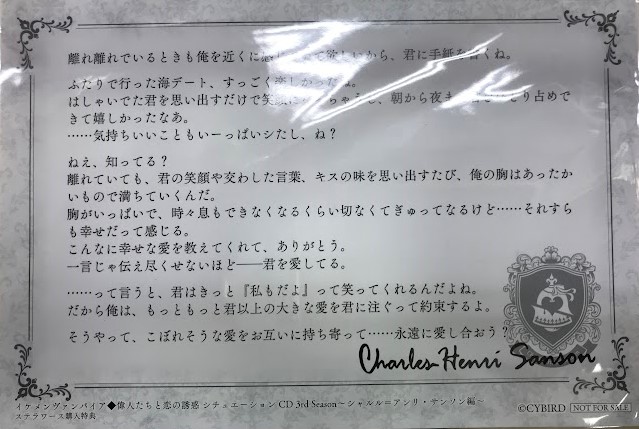 離れ離れでいるときも俺を近くに感じ て欲しいから、君に手紙を書くね。
ふたりで行った海デート、すっごく楽しかったね。
はしゃいでた君を思い出すだけで笑顔に ちゃうし、朝から夜ま とり占めで
きて嬉しかったなあ。
……気持ちいいこともいーっぱいシたし、ね？
ねえ、知ってる？
離れていても、君の笑顔や交わした言葉、キスの味を思い出すたび、俺の胸はあったか
いもので満ちていくんだ。
胸がいっぱいで、時々息もできなくなるくらい切なくてぎゅってなるけど……それすら
も幸せだって感じる。
こんなに幸せな愛を教えてくれて、ありがとう。
一言じゃ伝え尽くせないほど──君を愛してる。
……って言うと、君はきっと『私もだよ』って笑ってくれるんだよね。
だから俺は、もっともっと君以上の大きな愛を君に注ぐって約束するよ。
そうやって、こぼれそうな愛をお互いに持ち寄って……永遠に愛し合おう？
Charles-Henri Sanson
イケメンヴァンパイア◆偉人たちと恋の誘惑 シチュエーションCD 3rd Season～シャルル＝アンリ・サンソン編～
ステラワース購入特典
©CYBIRD NOT FOR SALE